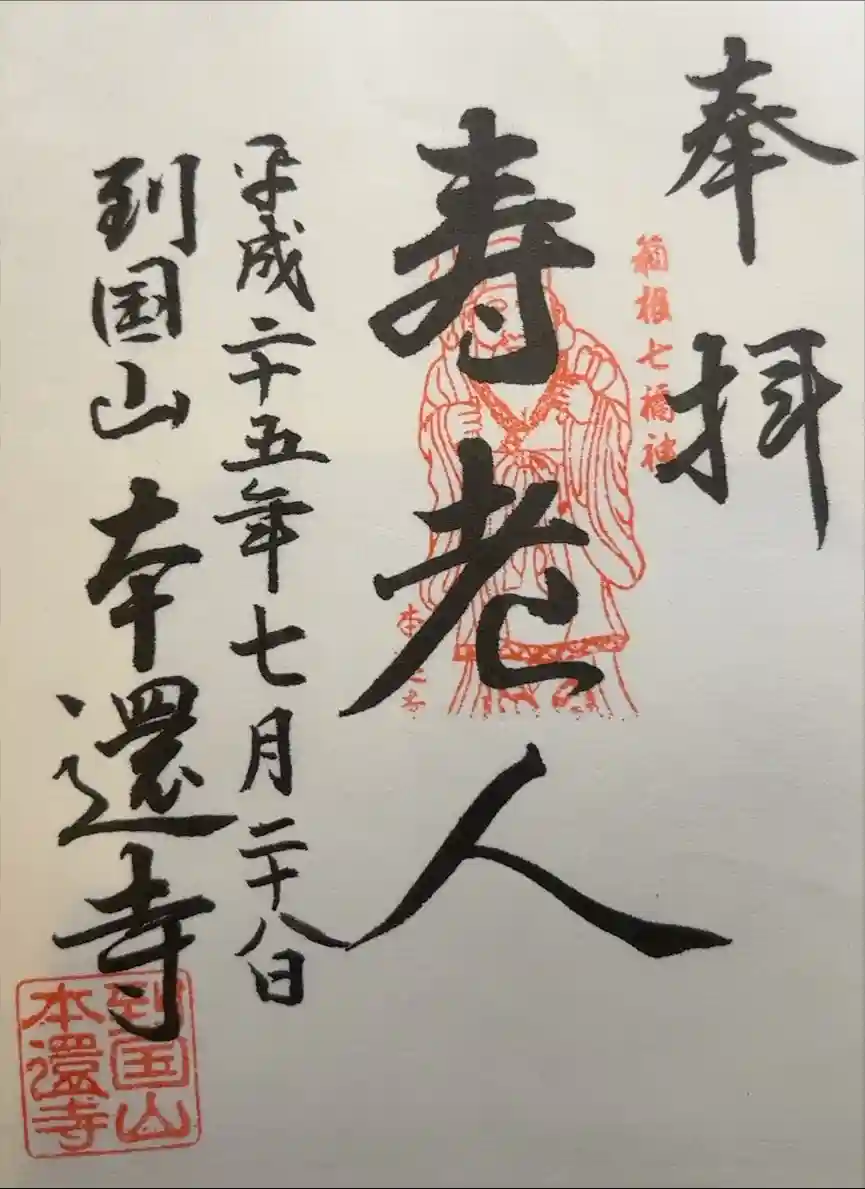 奉拝
箱根七福神
寿老人
本還寺
平成二十五年七月二十八日
到国山本還寺
到国山
本還寺